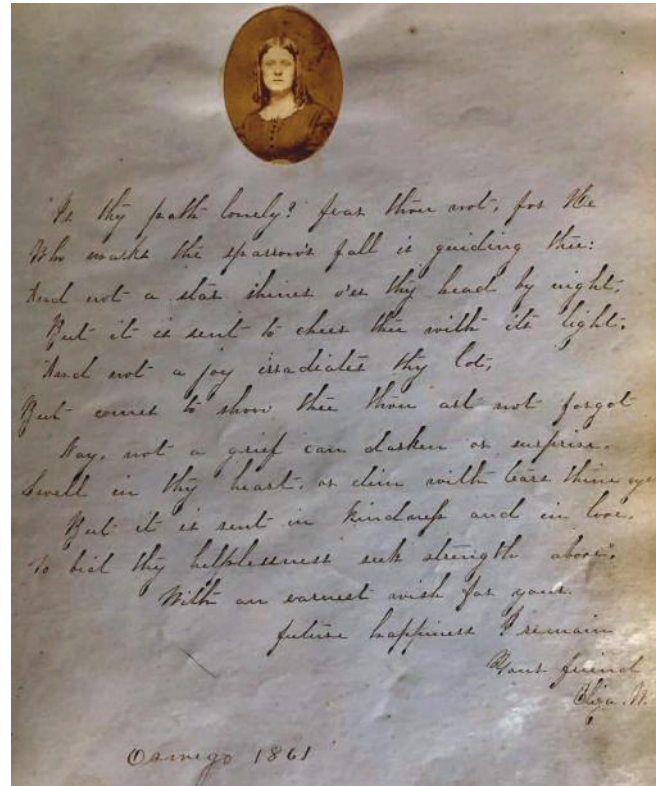 "Is thy path lonely? fear thou not, for He
Who marks the sparrow's fall is guiding thee:
And not a star shines o'er thy head by night,
But it is sent to cheer thee with its light,
And not a joy irradiates thy lot,
But comes to show thee thou art not forgot
Nay, not a grief can darken or surprise,
Swell in thy heart, or dim with tears thine eyes
But it is sent in kindness and in love,
To bid thy helplessness seek strength above."
With an earnest wish for your
future happiness I remain
Your friend
Eliza. W.
Oswego 1861